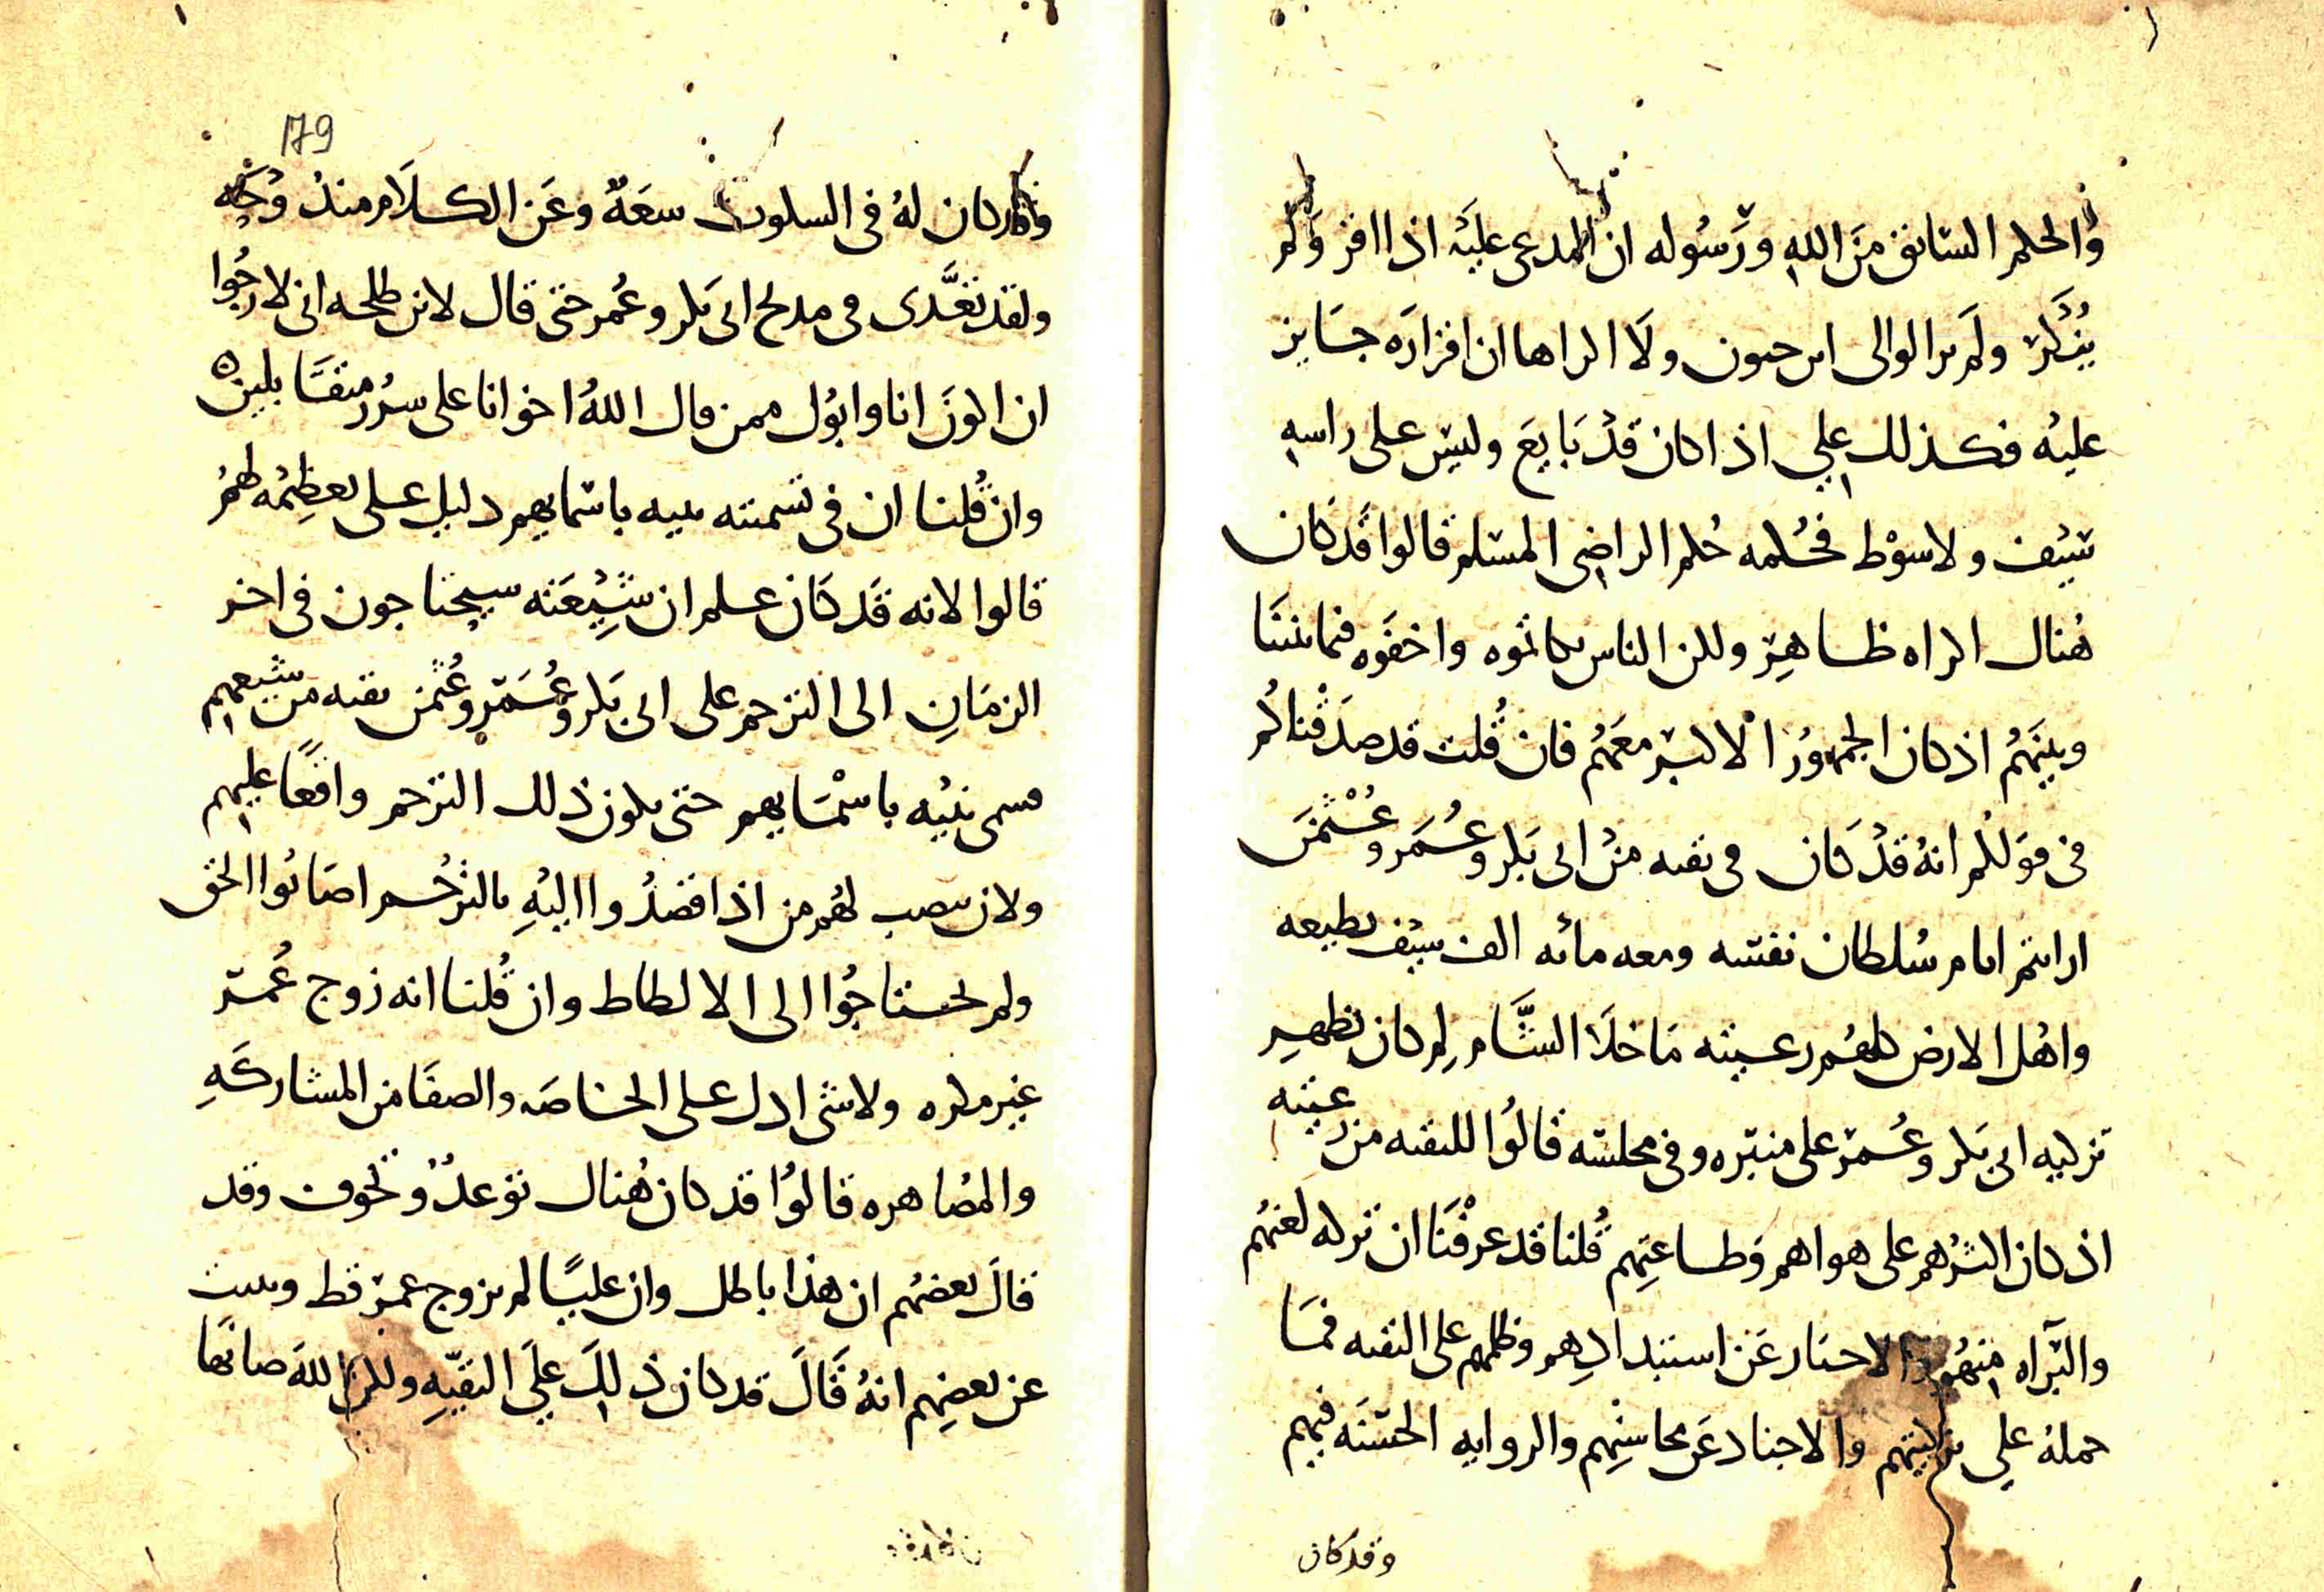 والحكم السابق من الله ورسوله ان المدعى عليه اذا اقر ولم
ينكر ولم ير الوالي اثر جنون ولا اكراها ان اقراره جايز
عليه فكذلك علي اذا كان قد بايع وليس على راسه
سيف ولا سوط فحكمه حكم الراضي المسلم قالوا قد كان
هناك اكراه ظاهر ولكن الناس تكاتموه واخفوه فيما بيننا
وبينهم اذ كان الجمهور الاكبر معهم فان قلت قد صدقناكم
في قولكم انه قد كان في تقيه من ابى بكر وعمر وعثمن
ارايتم ايام سلطان نفسه ومعه مائه الف سيف تطيعه
واهل الارض كلهم رعيته ما خلا الشام لم كان يظهر
تزكيه ابى بكر وعمر على منبره وفي مجلسه قالوا للتقيه من رعيته
اذ كان اكثرهم على هواهم وطاعتهم قلنا قد عرفنا ان تركه لعنهم
والبراه منهم والاخبار عن استبدادهم وظلمهم على التقيه فما
حمله على تزكيتهم والاخبار عن محاسنهم والروايه الحسنه فيهم
وقد كان
179
وقد كان له في السكوت سعة وعن الكلام مندوحه
ولقد تعدى في مدح ابى بكر وعمر حتى قال لابن طلحه انى لارجوا
ان اكون انا وابوك ممن قال الله اخوانا على سرر متقابلين
وان قلنا ان في تسميته بنيه باسمايهم دليل على تعظيمه لهم
قالوا لانه قد كان علم ان شيعته سيحتاجون في اخر
الزمان الى الترحم على ابى بكر وعمر وعثمن تقيه من شيعهم
فسمى بنيه باسمايهم حتى يكون ذلك الترحم واقعا عليهم
ولان ينصب لهم من اذا قصدوا اليه بالترحم اصابوا الحق
ولم يحتاجوا الى الالطاط وان قلنا انه زوج عمر
غير مكره ولا شى ادل على الخاصه والصفا من المشاركه
والمصاهره قالوا قد كان هناك توعد وتخوف وقد
قال بعضهم ان هذا باطل وان عليا لم يزوج عمر قط
عن بعضهم انه قال قد كان ذلك على التقيه ولكن الله صانها